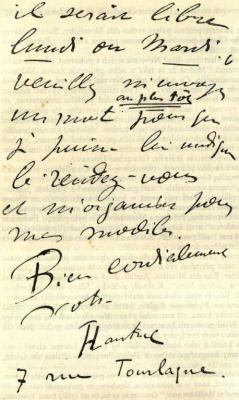 il serait libre
lundi ou Mardi,
veuillez m'envoyer
au plus tôt
un mot pour que
je puisse lui indiquer
le rendez-vous
et m'organiser pour
mes modèles.
Bien cordialement
votre
HLautrec
7 rue Tourlaque.